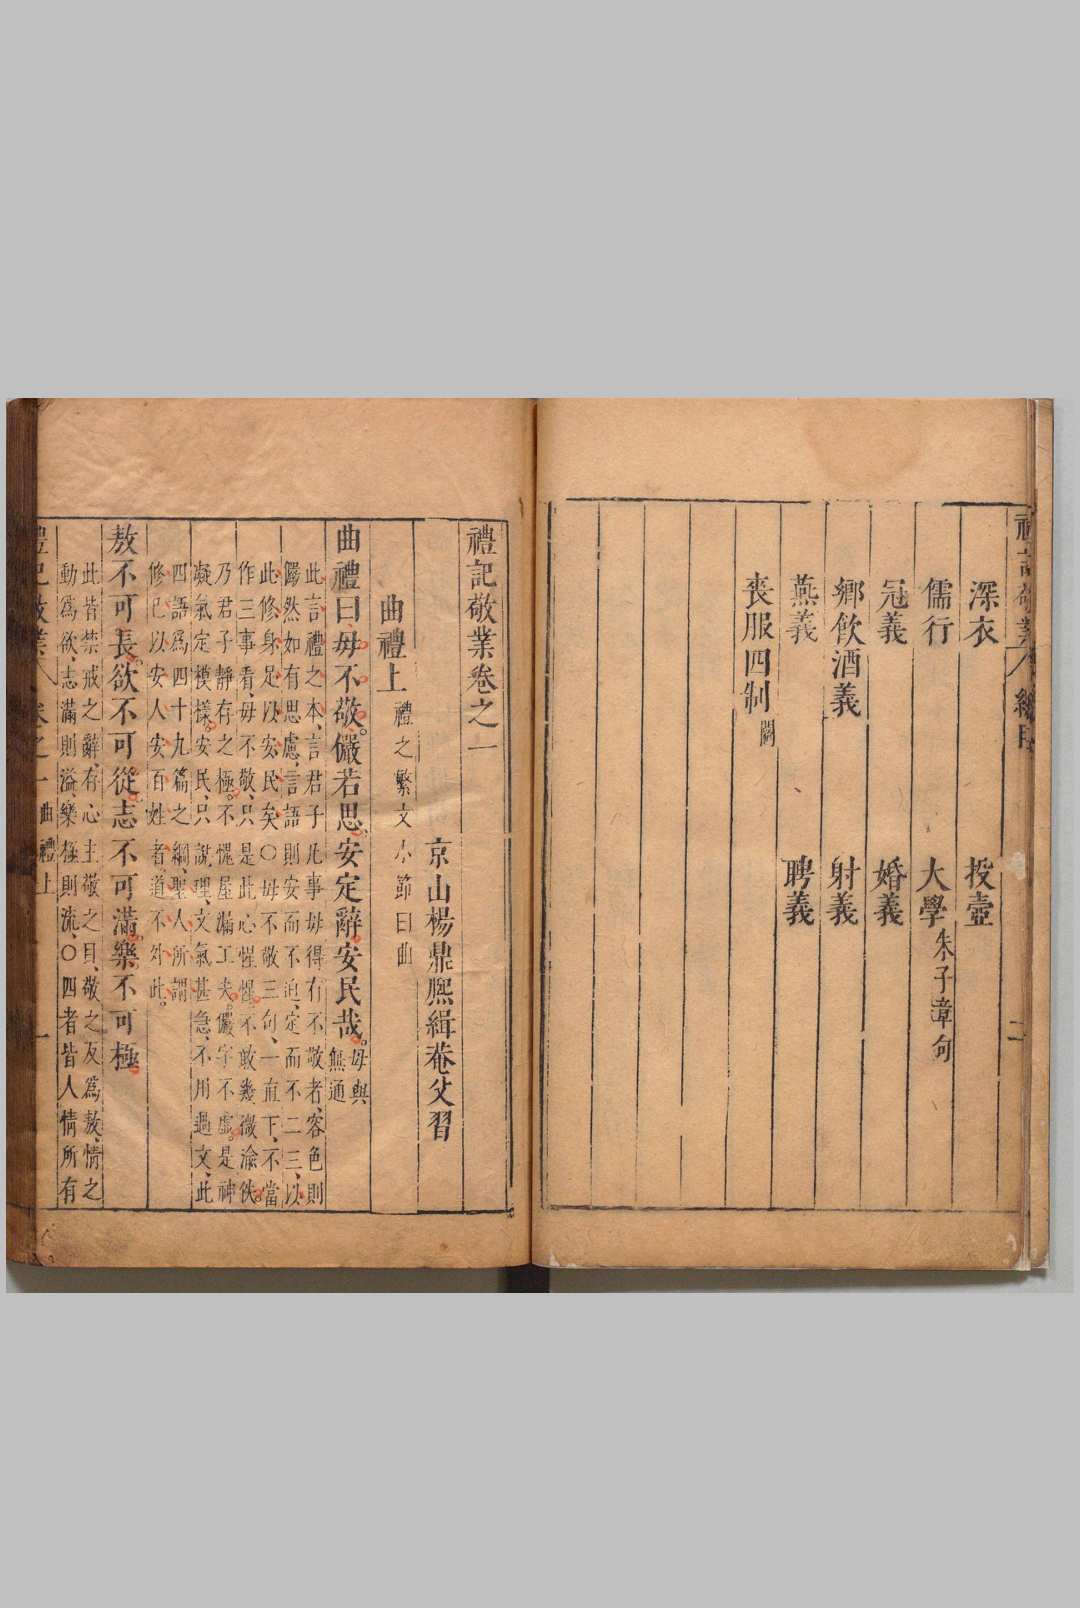 深衣 投壺
儒行 大學朱子章句
冠義 婚義
鄉飲酒義 射義
燕義 聘義
喪服四制闕
二
禮記敬業卷之一
京山楊鼎熙緝菴父習
曲禮上禮之繁文小節曰曲
曲禮曰毋不敬儼若思安定辭安民哉毋與無通
此言禮之本言君子凡事毋得有不敬者容色則
儼然如有思慮言語則安而不迫定而不二三以
此修身足以安民矣○毋不敬三句一直下不當
作三事看毋不敬只是此心惺惺不敢幾微渝佚
乃君子靜存之極不愧屋漏工夫儼字不虛是神
凝氣定模樣安民只說理文氣甚急不用過文此
四語為四十九篇之綱聖人所謂
修己以安人安百姓者道不外此
敖不可長欲不可從志不可滿樂不可極
此皆禁戒之辭有心主敬之目敬之反為敖情之
動為欲志滿則溢樂極則流○四者皆人情所有
曲禮上
一